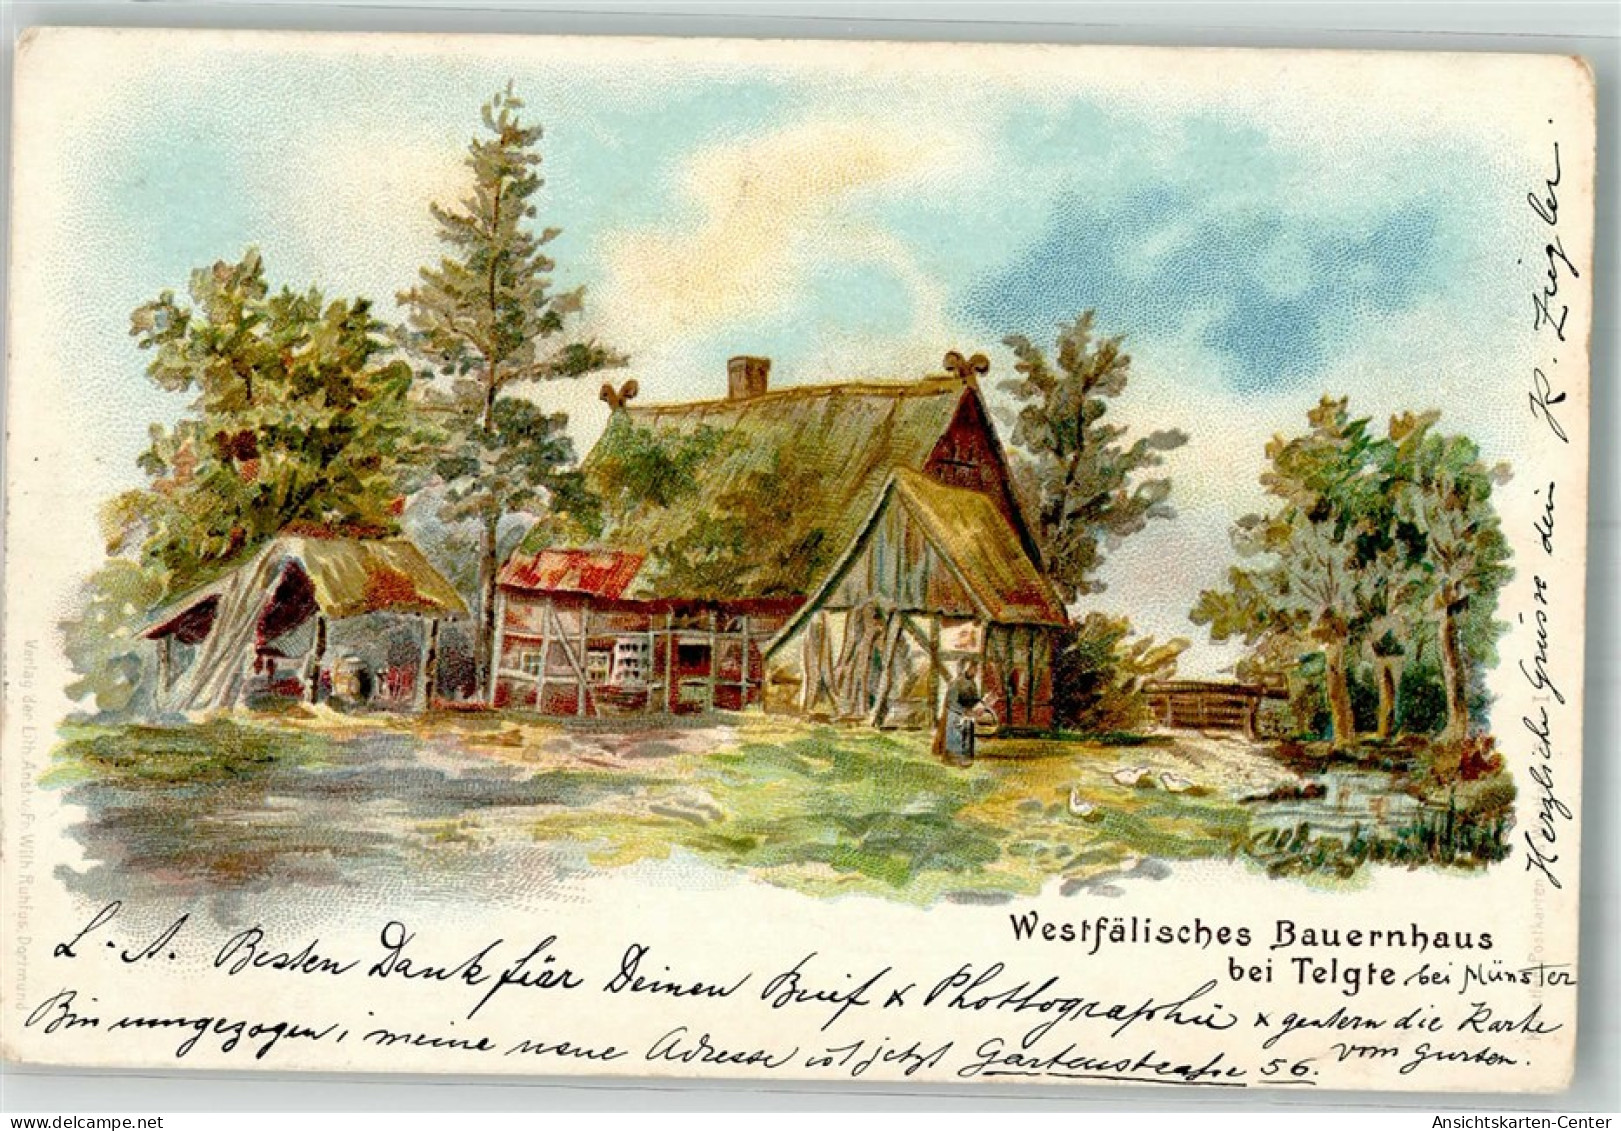 Westfälisches Bauernhaus
bei Telgte bei Münster
L. A. Besten Dank für Deinen Brief & Photographie & gestern die Karte
vom
Bin umgezogen, meine neue Adresse ist jetzt Gartenstraße 56.
Herzliche Grüsse dein K. Ziegler.
Verlag der Lith. Anst. v. Fr. Wilh. Ruhfus, Dortmund
Postkarten
Ansichtskarten-Center